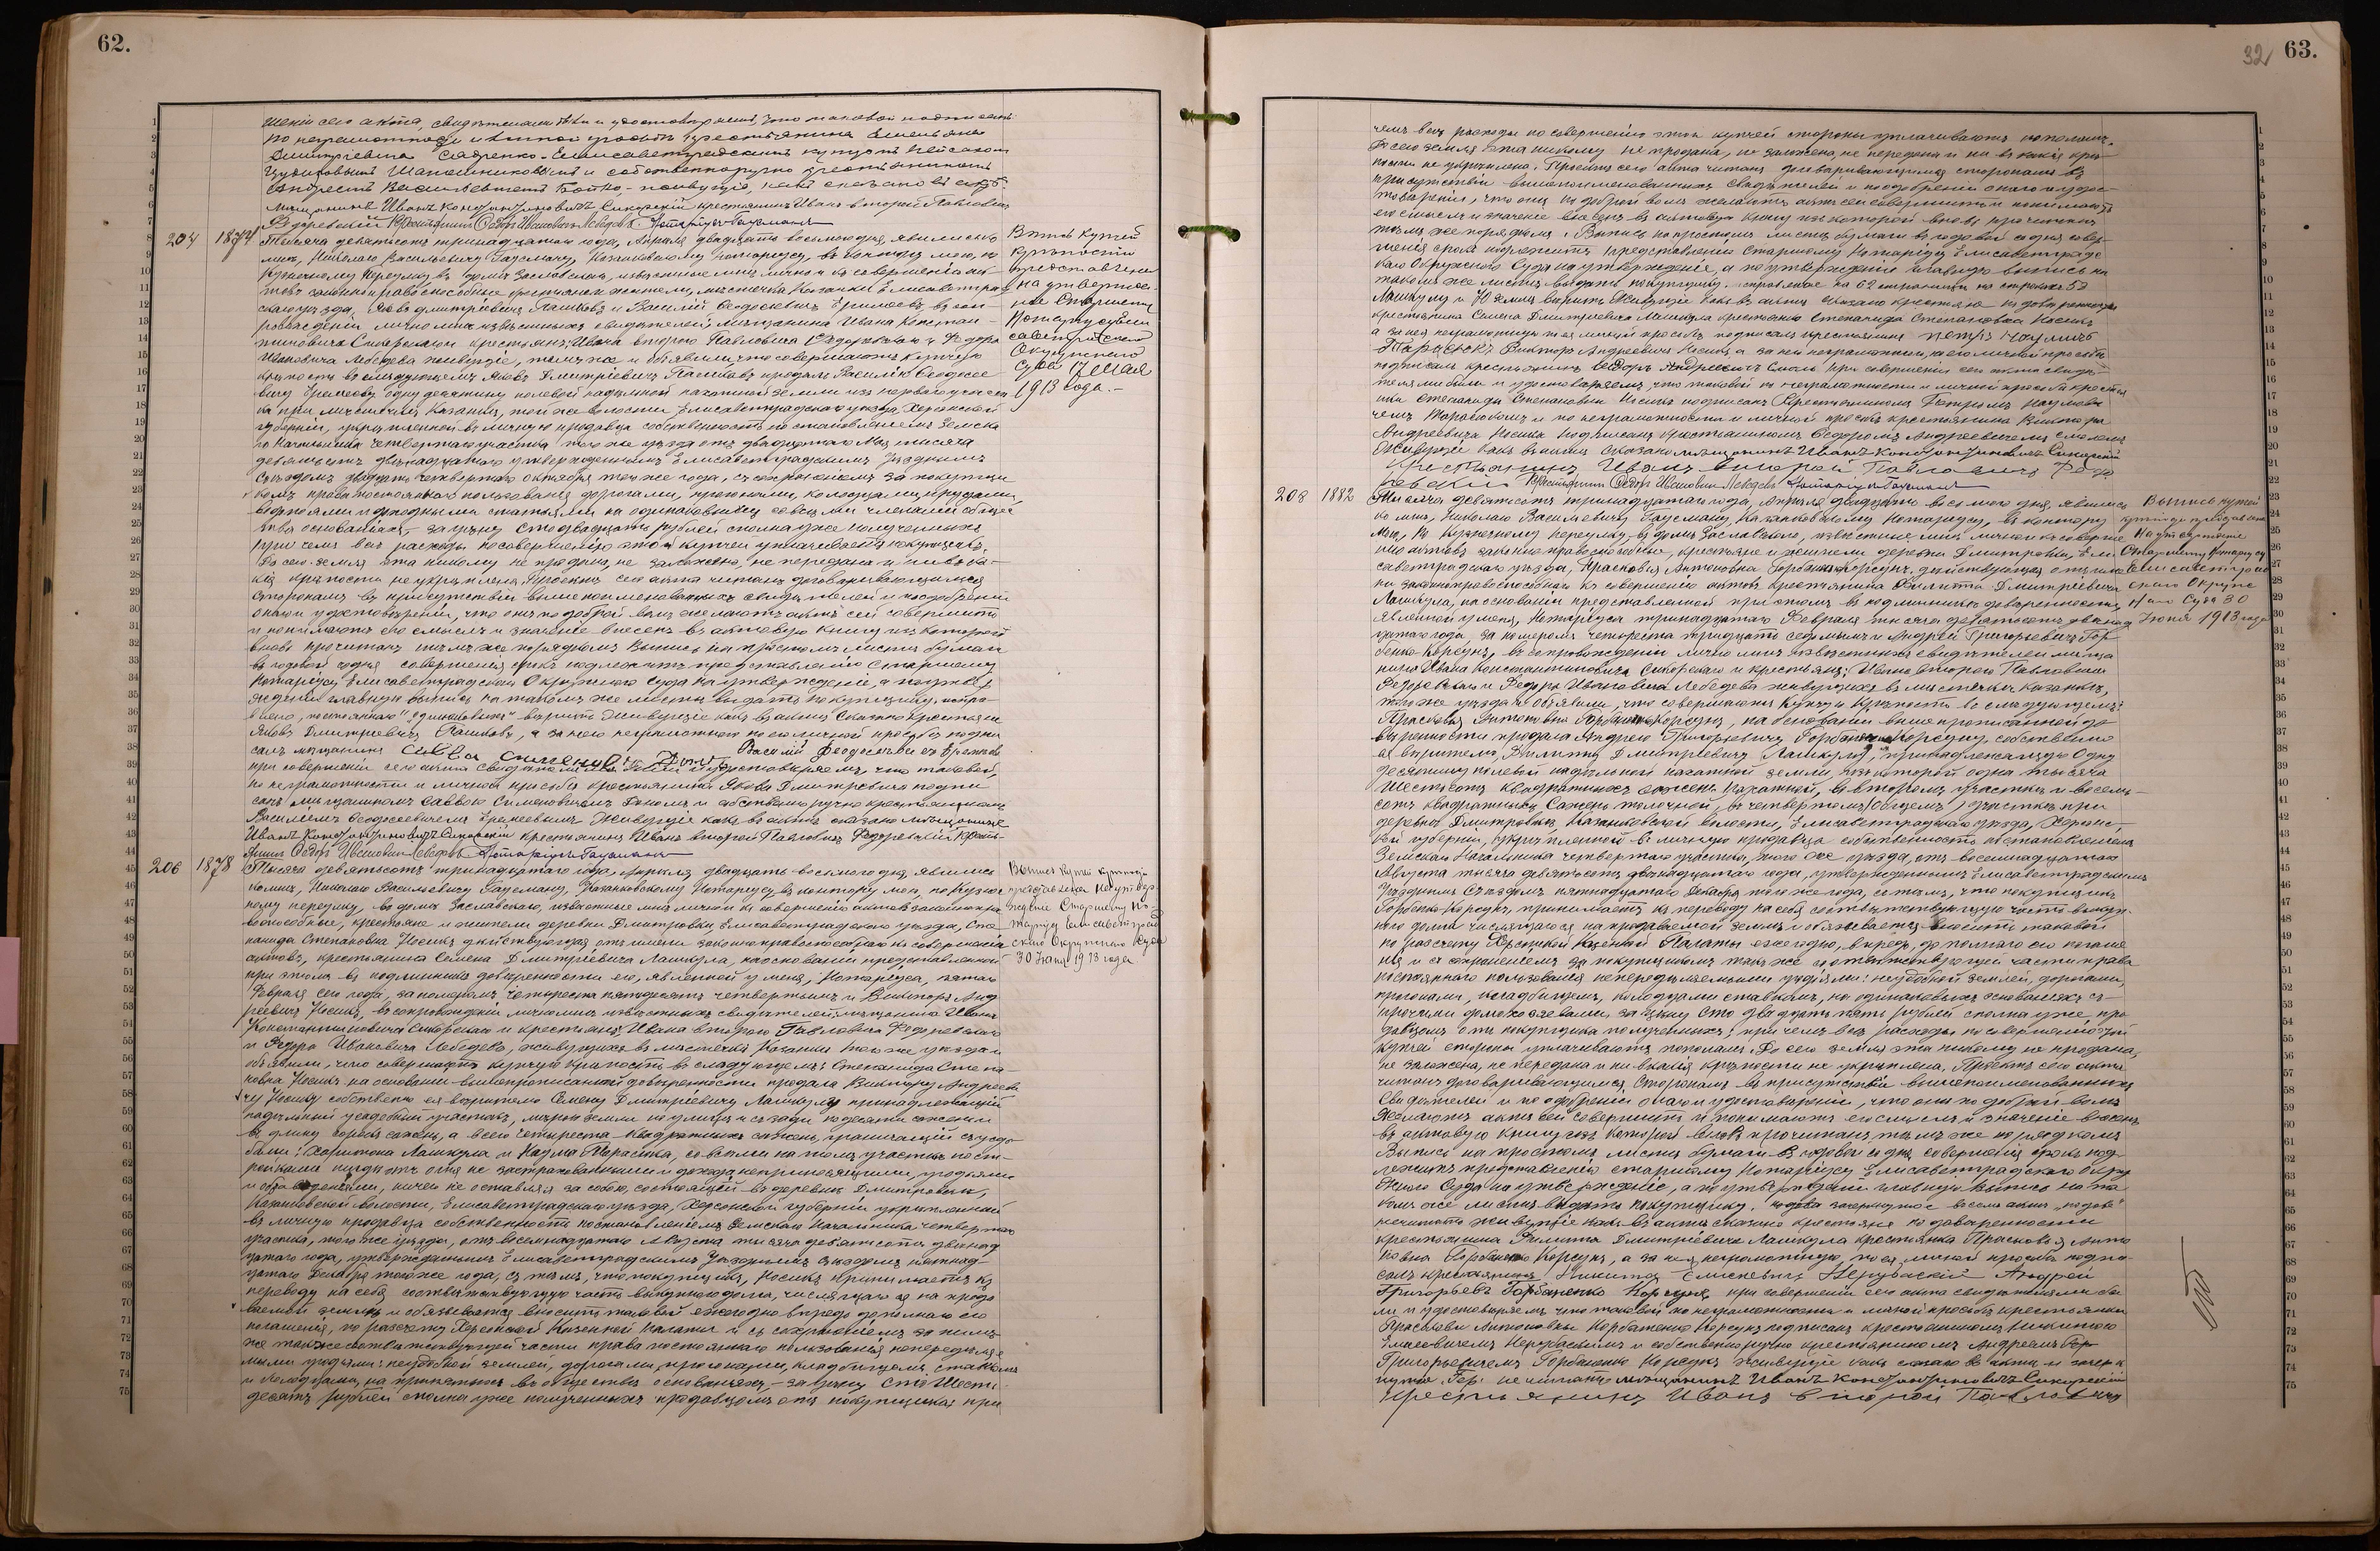 62.
шенiи сего акта, свидѣтелями были и удостовѣряемъ, что таковой подписанъ
по неграмотности и личной просьбѣ крестьянина Емельяна
Дмитрiевича Елисаветградскимъ купцомъ
Шапошниковымъ и собственноручно крестьяниномъ
Андреемъ Васильевичемъ Бойко, живущiе, какъ сказано въ актѣ.
мѣщанинъ Иванъ Константиновичъ Сикорскiй крестьянинъ Иванъ второй Павловичъ
Федоревскiй Крестьянинъ Федоръ Ивановичъ Лебедевъ Нотарiусъ Гаусманъ
204 1874 Тысяча девятьсотъ тринадцатаго года, Апрѣля двадцать восьмого дня, явились ко
мнѣ, Николаю Васильевичу Гаусману, Казанковскому Нотарiусу, въ контору мою, по
Кузнечному переулку въ домѣ Заславскаго, извѣстные мнѣ лично и къ совершенiю ак-
товъ законно правоспособные крестьяне жители мѣстечка Казанки Елисаветград-
скаго уѣзда, Яковъ Дмитрiевичъ Пашковъ и Василiй Феодосiевичъ Еремѣевъ, въ соп-
ровожденiи лично мнѣ извѣстныхъ свидѣтелей, мѣщанина Ивана Констан-
тиновича Сикорскаго и крестьянъ: Ивана второго Павловича Федоревскаго и Федора
Ивановича Лебедева живущiе, тамъ же и объявили, что совершаютъ купчую
крѣпость въ слѣдующемъ: Яковъ Дмитрiевичъ Пашковъ продалъ Василiю Феодосiе-
вичу Еремѣеву одну десятину полевой надѣльной пахатной земли изъ перваго участ-
ка при мѣстечкѣ Казанкѣ, той же волости Елисаветградскаго уѣзда, Херсонской
губернiи, укрѣпленной въ личную продавца собственность постановленiемъ Земска-
го Начальника четвертаго участка того же уѣзда отъ двадцатаго Мая тысяча
девятьсотъ двѣнадцатаго утвержденнымъ Елисаветградскимъ Уѣзднымъ
Съѣздомъ двадцать четвертаго октября того же года, съ сохраненiемъ за покупщи-
комъ права постояннаго пользованiя дорогами, прогонами, колодцами, прудами,
водопоями и доходными статьями на одинаковыхъ со всѣми членами общес-
тва основанiяхъ, за цѣну сто двадцать рублей сполна уже полученныхъ
при чемъ всѣ расходы по совершенiю этой купчей уплачиваетъ покупщикъ.
До сего земля эта никому не продана, не заложена, не передана и ни въ ка-
кiя крѣпости не укрѣплена. Проектъ сего акта читанъ договаривающимся
сторонамъ въ присутствiи вышепоименованныхъ свидѣтелей и по одобренiи
онаго и удостовѣренiи, что они по доброй волѣ желаютъ актъ сей совершить
и понимаютъ его смыслъ и значенiе внесенъ въ актовую книгу изъ которой
вновь прочитанъ тѣмъ же порядкомъ. Выпись на простомъ листѣ бумаги
въ годовой со дня совершенiя срокъ подлежитъ представленiю Старшему
Нотарiусу Елисаветградскаго Окружнаго Суда на утвержденiе, а по утвер-
жденiи главную выпись на таковомъ же листѣ выдать покупщику.
„постояннаго" „одинаковыхъ" вѣрить. Живущiе какъ въ актѣ сказано крестьяне
Яковъ Дмитрiевичъ Пашковъ, а за него неграмотнаго по его личной просьбѣ подпи-
салъ мѣщанинъ Савва Семеновъ Василiй Феодосiевъ Еремѣевъ
при совершенiи сего акта свидѣтелями были и удостовѣряемъ, что таковой,
по неграмотности и личной просьбѣ крестьянина Якова Дмитрiевича подпи-
санъ мѣщаниномъ Саввою Семеновичемъ и собственноручно крестьяниномъ
Василiемъ Феодосiевичемъ Еремѣевымъ. Живущiе какъ въ актѣ сказано мѣщанинъ
Иванъ Константиновичъ Сикорскiй крестьянинъ Иванъ второй Павловичъ Федоревскiй Кресть-
янинъ Федоръ Ивановичъ Лебедевъ Нотарiусъ Гаусманъ
Выпись купчей
крѣпости
представлена
на утвержде-
нiе Старшему
Нотарiусу Ели-
саветградскаго
Окружнаго
Суда 17 Мая
1913 года.-
206 1878 Тысяча девятьсотъ тринадцатаго года, Апрѣля двадцать восьмого дня, явились
ко мнѣ, Николаю Васильевичу Гаусману, Казанковскому Нотарiусу, въ контору мою, по Кузнеч-
ному переулку, въ домѣ Заславскаго, извѣстные мнѣ лично и къ совершенiю актовъ законно пра-
воспособные, крестьяне и жители деревни Дмитровки, Елисаветградскаго уѣзда, Сте-
панида Степановна Носикъ дѣйствующая отъ имени законно правоспособнаго къ совершенiю
актовъ, крестьянина Семена Дмитрiевича Лашкула, на основанiи представленной
при этомъ въ подлинникѣ довѣренности его, явленной у меня, Нотарiуса, пятаго
Февраля сего года, за номеромъ четыреста пятьдесятъ четвертымъ и Викторъ Анд-
реевичъ Носикъ, въ сопровожденiи лично мнѣ извѣстныхъ свидѣтелей: мѣщанина Ивана
Константиновича Сикорскаго и крестьянъ: Ивана второго Павловича Федоревскаго
и Федора Ивановича Лебедева, живущихъ въ мѣстечкѣ Казанкѣ того же уѣзда и
объявили, что совершаютъ купчую крѣпость въ слѣдующемъ: Степанида Степа-
новна Носикъ на основанiи вышепрописанной довѣренности продала Виктору Андрееви-
чу Носику собственно ея вѣрителю Семену Дмитрiевичу Лашкулу принадлежащiй
надѣльный усадебный участокъ, мѣрою земли по улицѣ и сзади по десяти сажени и
въ длину сорокъ саженъ, а всего четыреста квадратныхъ саженъ, граничащiй съ усадь-
бами: Харитона Лашкула и Наума Тарасюка, со всѣми на томъ участкѣ пост-
ройками нигдѣ отъ огня не застрахованными и дохода неприносящими, угодьями
и обзаведенiями, ничего не оставляя за собою, состоящiй въ деревнѣ Дмитровкѣ,
Казанковской волости, Елисаветградскаго уѣзда, Херсонской губернiи укрѣпленный
въ личную продавца собственность постановленiемъ Земскаго Начальника четвертаго
участка, того же уѣзда, отъ восемнадцатаго Августа тысяча девятьсотъ двѣнад-
цатаго года, утвержденнымъ Елисаветградскимъ Уѣзднымъ Съѣздомъ пятнад-
цатаго Декабря того же года, съ тѣмъ, что покупщикъ, Носикъ принимаетъ къ
переводу на себя соотвѣтствующую часть выкупного долга, числящагося на прода-
ваемой землѣ и обязывается вносить таковой ежегодно впредь до полнаго его
погашенiя, по разсчету Херсонской Казенной Палаты и съ сохраненiемъ за нимъ
же также соотвѣтствующей части права постояннаго пользованiя непередѣляе-
мыми угодьями: неудобной землей, дорогами, прогонами, кладбищемъ, ставкомъ
и колодцами, на принятыхъ въ обществѣ основанiяхъ,- за цѣну Сто Шесть-
десятъ рублей сполна уже полученныхъ продавцомъ отъ покупщика; при
Выпись купчей крѣпости
представлена на утвер-
жденiе Старшему Но-
тарiусу Елисаветград-
скаго Окружнаго Суда
30 1913 года
32 63.
чемъ всѣ расходы по совершенiю этой купчей стороны уплачиваютъ пополамъ.
До сего земля эта никому не продана, не заложена, не передана и ни въ какiя крѣ-
пости не укрѣплена. Проектъ сего акта читанъ договаривающимся сторонамъ въ
присутствiи вышепоименованныхъ свидѣтелей и по одобренiи онаго и удос-
товѣренiи, что они по доброй волѣ желаютъ актъ сей совершить и понимаютъ
его смыслъ и значенiе внесенъ въ актовую книгу изъ которой вновь прочитанъ
тѣмъ же порядкомъ. Выпись на простомъ листѣ бумаги въ годовой со дня совер-
шенiя срокъ подлежитъ представленiю Старшему Нотарiусу Елисаветград-
скаго Окружнаго Суда на утвержденiе, а по утвержденiи главную выпись на
таковомъ же листѣ выдать покупщику. на 62 страницѣ на строкахъ 58
Лашкулу и 70 землѣ вѣрить. Живущiе какъ въ актѣ сказано крестьяне по довѣренности
крестьянина Семена Дмитрiевича Лашкула крестьянка Степанида Степановна Носикъ
а за нея неграмотную по ея личной просьбѣ подписалъ крестьянинъ Петръ Наумовъ
Тарасюкъ Викторъ Андреевичъ Носикъ, а за него неграмотнаго, по его личной просьбѣ
подписалъ крестьянинъ Федоръ Андреевичъ При совершенiи сего акта свидѣ-
телями были и удостовѣряемъ, что таковой по неграмотности и личной просьбѣ крестьян-
ки Степаниды Степановны Носикъ подписанъ Крестьяниномъ Петромъ Наумови-
чемъ Тарасюкомъ и по неграмотности и личной просьбѣ крестьянина Виктора
Андреевича Носика подписанъ крестьяниномъ Федоромъ Андреевичемъ
Живущiе какъ въ актѣ сказано мѣщанинъ Иванъ Константиновичъ Сикорскiй
Крестьянинъ Иванъ второй Павловичъ Федо-
ревскiй Крестьянинъ Федоръ Ивановичъ Лебедевъ Нотарiусъ Гаусманъ
208 1882 Тысяча девятьсотъ тринадцатаго года, Апрѣля двадцать восьмого дня, явились
ко мнѣ, Николаю Васильевичу Гаусману, Казанковскому Нотарiусу, въ контору
мою, по Кузнечному переулку, въ домѣ Заславскаго, извѣстные мнѣ лично и къ соверше-
нiю актовъ законно правоспособные, крестьяне и жители деревни Дмитровки, Ели-
саветградскаго уѣзда, Прасковья Антоновна Горбаченко-Корсунъ, дѣйствующая отъ име-
ни законноправоспособнаго къ совершенiю актовъ крестьянина Филиппа Дмитрiевича
Лашкула, на основанiи представленной при этомъ въ подлинникѣ довѣренности,
явленной у меня, Нотарiуса тринадцатаго Февраля тысяча девятьсотъ двѣнад-
цатаго года, за номеромъ четыреста тридцать седьмымъ и Андрей Григорьевичъ Гор-
бенко-Корсунъ, въ сопровожденiи лично мнѣ извѣстныхъ свидѣтелей мѣща-
нина Ивана Константиновича Сикорскаго и крестьянъ: Ивана второго Павловича
Федоревскаго и Федора Ивановича Лебедева живущихъ въ мѣстечкѣ Казанкѣ,
того же уѣзда и объявили, что совершаютъ купчую крѣпость въ слѣдующемъ:
Прасковья Антоновна Горбаченко-Корсунъ, на основанiи вышепрописанной до-
вѣренности продала Андрею Григорьевичу Горбаченко-Корсуну, собственно
ея вѣрителю, Филиппу Дмитрiевичу Лашкулу, принадлежащую одну
десятину полевой надѣльной пахатной земли, изъ которой одна тысяча
шестьсотъ квадратныхъ саженъ пахатной, въ второмъ участкѣ и восемь-
сотъ квадратныхъ саженъ толочной, въ четвертомъ (общемъ) участкѣ при
деревнѣ Дмитровкѣ Казанковской волости, Елисаветградскаго уѣзда, Херсонс-
кой губернiи, укрѣпленной въ личную продавца собственность постановленiемъ
Земскаго Начальника четвертаго участка, того же уѣзда, отъ восемнадцатаго
Августа тысяча девятьсотъ двѣнадцатаго года, утвержденнымъ Елисаветградскимъ
Уѣзднымъ Съѣздомъ пятнадцатаго Декабря того же года, съ тѣмъ, что покупщикъ
Горбенко-Корсунъ, принимаетъ къ переводу на себя соотвѣтствующую часть выкуп-
ного долга числящагося на продаваемой землѣ и обязывается вносить таковой
по разсчету Херсонской Казенной Палаты ежегодно, впредь, до полнаго его погаше-
нiя и съ сохраненiемъ за покупщикомъ также соотвѣтствующей части права
постояннаго пользованiя непередѣляемыми угодьями: неудобной землей, дорогами,
прогонами, кладбищемъ, колодцами ставкомъ, на одинаковыхъ основанiяхъ съ
прочими домохозяевами, за цѣну сто двадцать пять рублей сполна уже про-
давцомъ отъ покупщика полученныхъ; при чемъ всѣ расходы по совершенiю этой
купчей стороны уплачиваютъ пополамъ. До сего земля эта никому не продана,
не заложена, не передана и ни въ какiя крѣпости не укрѣплена. Проектъ сего акта
читанъ договаривающимся сторонамъ въ присутствiи вышепоименованныхъ
свидѣтелей и по одобренiи онаго и удостовѣренiи, что они по доброй волѣ
желаютъ актъ сей совершить и понимаютъ его смыслъ и значенiе внесенъ
въ актовую книгу изъ которой вновь прочитанъ тѣмъ же порядкомъ
Выпись на простомъ листѣ бумаги въ годовой со дня совершенiя срокъ под-
лежитъ представленiю старшему Нотарiусу Елисаветградскаго Окру-
жнаго Суда на утвержденiе, а по утвержденiи главную выпись на та-
комъ же листѣ выдать покупщику.
нечитать живущiе какъ въ актѣ сказано крестьяне по довѣренности
крестьянина Филиппа Дмитрiевича Лашкула крестьянка Прасковья Анто-
новна Горбаченко Корсунъ, а за нея неграмотную, по ея личной просьбѣ подпи-
салъ крестьянинъ Никита Андрей
Григорьевъ Горбаченко Корсунъ при совершенiи сего акта свидѣтелями бы-
ли и удостовѣряемъ, что таковой по неграмотности и личной просьбѣ крестьянки
Прасковьи Антоновны Горбаченко Корсунъ подписанъ крестьяниномъ Никитою
и собственноручно крестьяниномъ Андреемъ Гор-
Григорьевичемъ Горбаченко Корсунъ живущiе какъ сказано въ актѣ и зачерк-
нутое Гор. не читать мѣщанинъ Иванъ Константиновичъ Сикорскiй
Крестьянинъ Иванъ второй Павловичъ
Выпись купчей
крѣпости представлена
на утвержденiе
Старшему Нотарiусу
Елисаветград-
скаго Окруж-
наго Суда 30
Iюня 1913 года